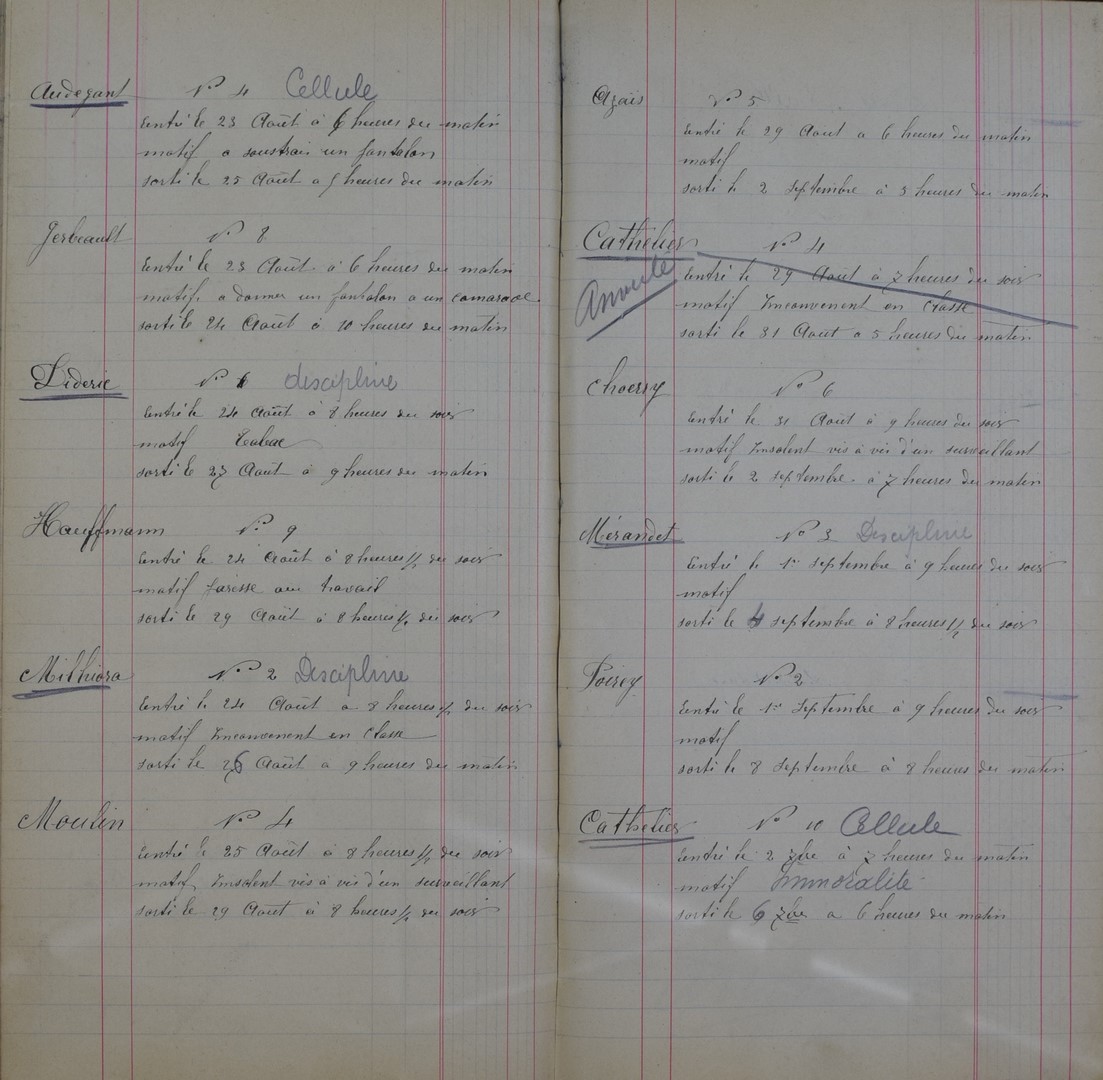 Audegant N° 4 Cellule
Entré le 23 Août à 6 heures du matin
motif a soustrais un pantalon
sorti le 25 Août a 5 heures du matin
Gerbeault N° 8
Entré le 23 Août à 6 heures du matin
motif a donner un pantalon a un camarade
sorti le 24 Août à 10 heures du matin
Liderie N° 1 discipline
Entré le 24 Août à 8 heures du soir
motif Tabac
sorti le 27 Août à 9 heures du matin
Hauffmann N° 9
Entré le 24 Août à 8 heures 1/2 du soir
motif paresse au travail
sorti le 29 Août à 8 heures 1/2 du soir
Milhiora N° 2 Discipline
Entré le 24 Août a 8 heures 1/2 du soir
motif Inconvenent en Classe
sorti le 26 Août a 9 heures du matin
Moulin N° 4
Entré le 25 Août à 8 heures 1/2 du soir
motif Insolent vis à vis d'un surveillant
sorti le 29 Août à 8 heures 1/2 du soir
Azaïs N° 5
Entré le 29 Aout a 6 heures du matin
motif
sorti le 2 Septembre à 5 heures du matin
Cathelier N° 4
Annulé
Entré le 29 Août à 7 heures du soir
motif Inconvenent en Classe
sorti le 31 Août a 5 heures du matin
Choeroy N° 6
Entré le 31 Août à 9 heures du soir
motif Insolent vis à vis d'un surveillant
sorti le 2 septembre à 7 heures du matin
Mérandet N° 3 Discipline
Entré le 1er septembre à 9 heures du soir
motif
sorti le 4 septembre à 8 heures 1/2 du soir
Poirey N° 2
Entré le 1er Septembre à 9 heures du soir
motif
sorti le 8 Septembre à 8 heures du matin
Cathelier N° 10 Cellule
Entré le 2 7bre à 7 heures du matin
motif Immoralité
sorti le 6 7bre a 6 heures du matin